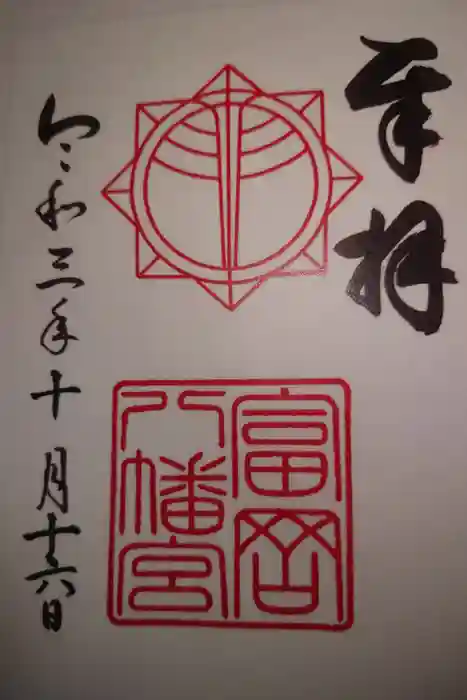 奉拝
富岡
八幡宮
令和三年十月十六日